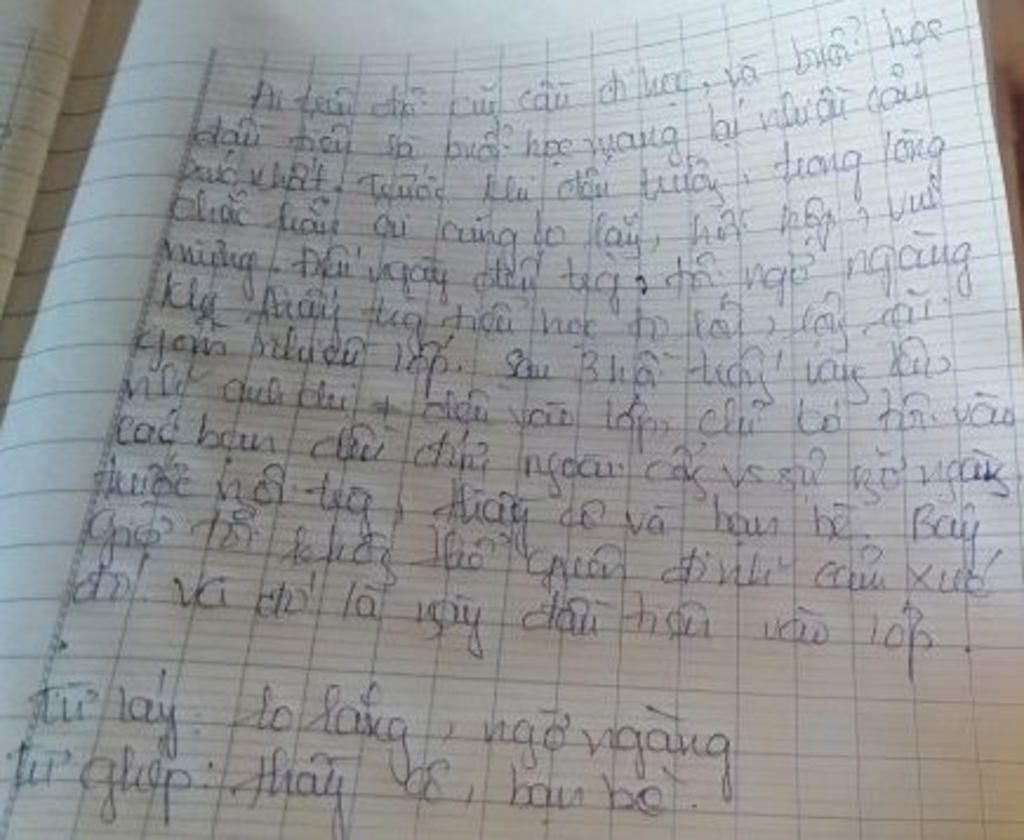 Ai trên đời cũg cần đi học, và buổi học
đầu tiên là buổi học mang lại nhiều cảm
xúc nhất. Trước khi đến trườg, trong lòng
chắc hẳn ai cũng lo lắg, hồi hộp, vui
mừng. Đến ngày đến trg, tôi ngỡ ngàng
khi thấy trg tiểu học to lớn,
gồm nhiều lớp. Sau 3 hồi trốg vang lên,
anh chị vào lớp, chỉ có tôi và
các bạn ngoài vs sự ngỡ ngàg
trước trg, thầy cô và bạn bè. Bây
giờ tôi khôg thể quên đc cảm xúc
đó. Vì đó là ngày đầu tiên vào lớp.
Từ láy: lo lắng, ngỡ ngàng
Từ ghép: thầy cô, bạn bè.